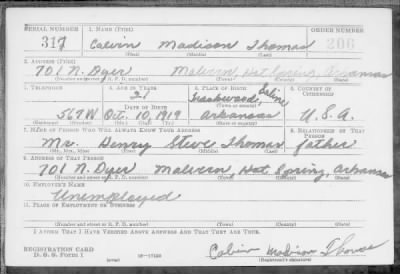 SERIAL NUMBER 1. NAME (PRINT) ORDER NUMBER
317 Calvin Madison Thomas 206
(First) (Middle) (Last)
2. ADDRESS (PRINT)
701 N. Dyer Malvern Hot Spring, Arkansas
(Number and street or R. F. D. number) (Town) (County) (State)
3. TELEPHONE 4. AGE IN YEARS 5. PLACE OF BIRTH 6. COUNTRY OF CITIZENSHIP
21 Saline
DATE OF BIRTH (Town or county)
567W Oct. 10, 1919 Arkansas U.S.A.
(Exchange) (Number) (Mo.) (Day) (Yr.) (State or country)
7. NAME OF PERSON WHO WILL ALWAYS KNOW YOUR ADDRESS 8. RELATIONSHIP OF THAT PERSON
Mr. Henry Steve Thomas father
(Mr., Mrs., Miss) (First) (Middle) (Last)
9. ADDRESS OF THAT PERSON
701 N. Dyer Malvern Hot Spring, Arkansas
(Number and street or R. F. D. number) (Town) (County) (State)
10. EMPLOYER'S NAME
Unemployed
11. PLACE OF EMPLOYMENT OR BUSINESS
(Number and street or R. F. D. number) (Town) (County) (State)
I AFFIRM THAT I HAVE VERIFIED ABOVE ANSWERS AND THAT THEY ARE TRUE.
REGISTRATION CARD
D. S. S. FORM 1 (over) 16—17105 Calvin Madison Thomas
(Registrant's signature)